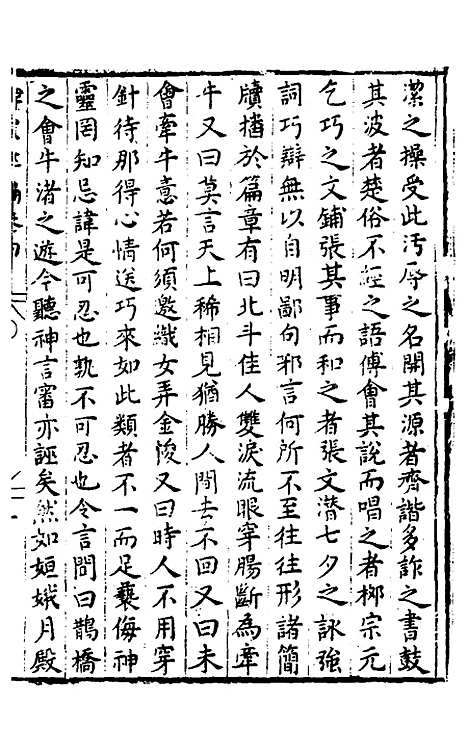 潔之操受此汚辱之名開其源者齊諧多詐之書鼓
其波者楚俗不經之語傅會其說而唱之者栁宗元
乞巧之文鋪張其事而和之者張文潛七夕之詠強
詞巧辯無以自明鄙句邪言何所不至往往形諸簡
牘播於篇章有曰北斗佳人雙淚流眼穿腸斷為牽
牛又曰莫言天上稀相見猶勝人間去不回又曰未
會牽牛意若何須邀織女弄金梭又曰時人不用穿
針待那得心情送巧來如此類者不一而足褻侮神
靈罔知忌諱是可忍也孰不可忍也令言問曰鵲橋
之會牛渚之遊今聽神言審亦誣矣然如姮娥月殿